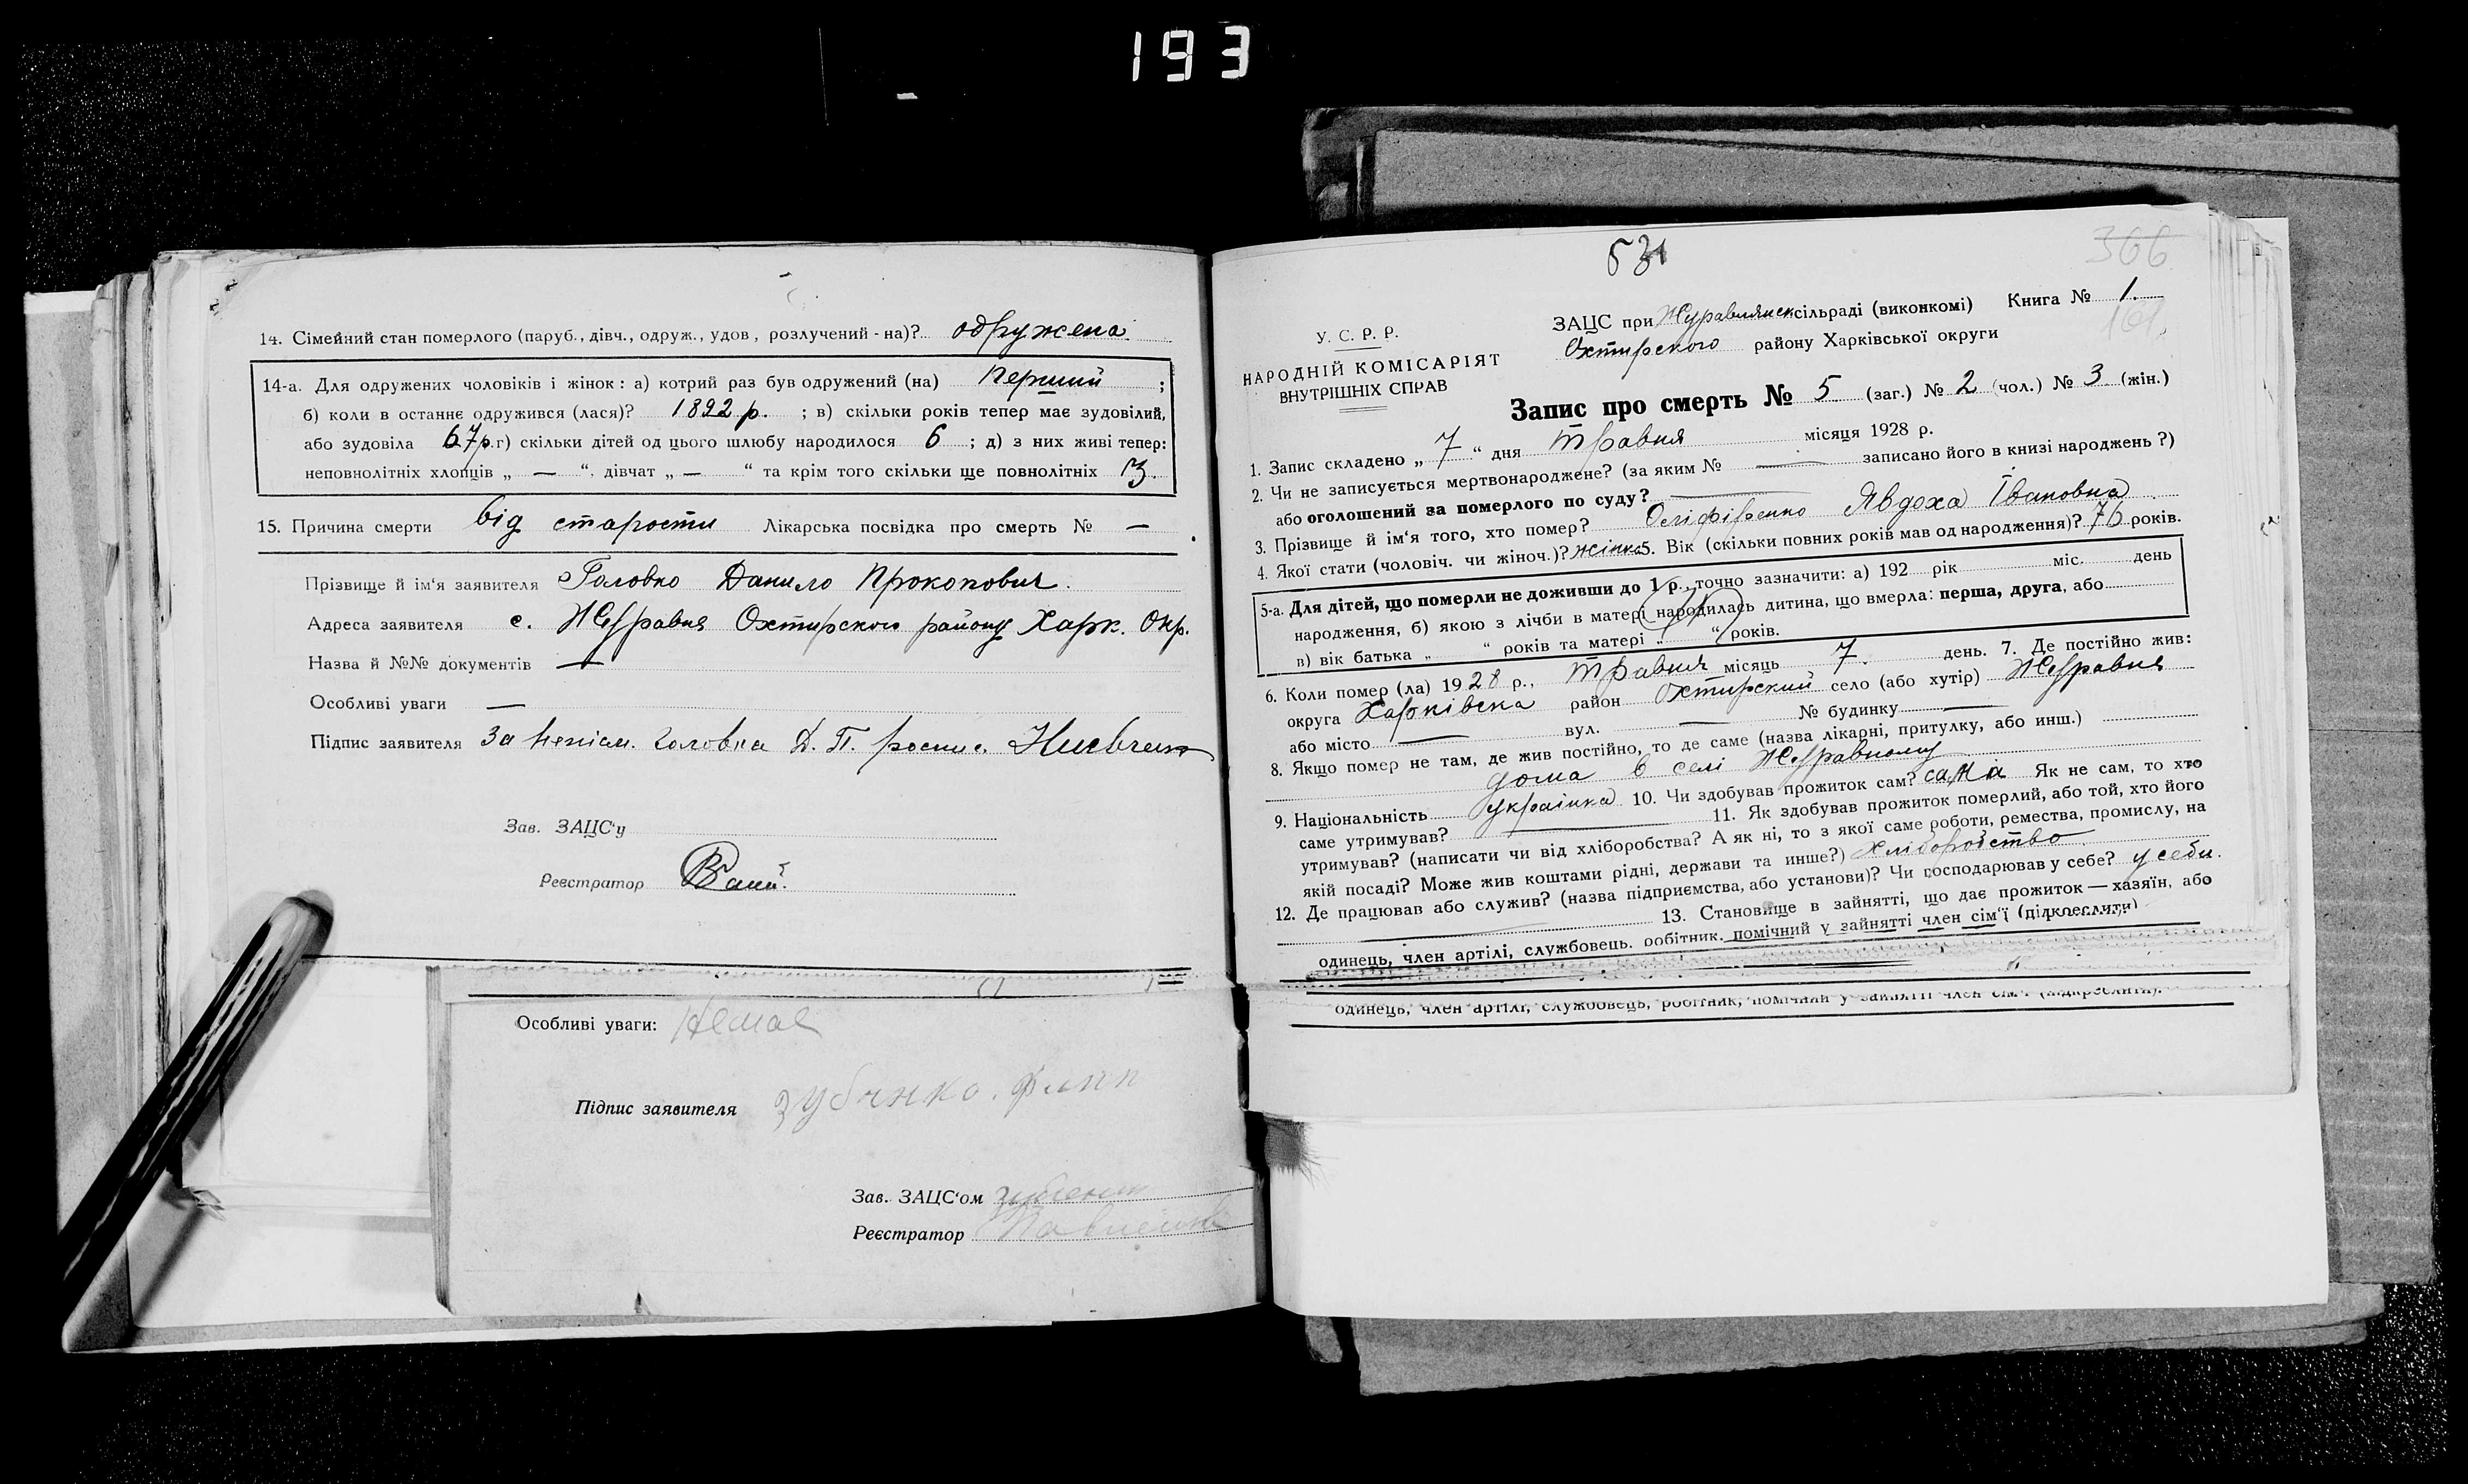 193
14. Сімейний стан померлого (паруб., дівч., одруж., удов, розлучений - на)? одружена
14-а. Для одружених чоловіків і жінок: а) котрий раз був одружений (на) перший ;
б) коли в останнє одружився (лася)? 1892 р. ; в) скільки років тепер має зудовілий,
або зудовіла 67 р. г) скільки дітей од цього шлюбу народилося 6 ; д) з них живі тепер:
неповнолітніх хлопців „ — “, дівчат „ — “ та крім того скільки ще повнолітніх 3.
15. Причина смерти від старости Лікарська посвідка про смерть № —
Прізвище й ім'я заявителя Головко Данило Прокопович.
Адреса заявителя с. Журавня Охтирского району Харк. Окр.
Назва й №№ документів —
Особливі уваги —
Підпис заявителя За непісм. Головка Д. П. роспис.
Зав. ЗАЦС'у
Реєстратор
Особливі уваги: Немає
Підпис заявителя
Зав. ЗАЦС'ом
Реєстратор
366
У. С. Р. Р.
НАРОДНІЙ КОМІСАРІЯТ
ВНУТРІШНІХ СПРАВ
ЗАЦС при Журавлянск сільраді (виконкомі) Книга № 1.
161
Охтирского району Харківської округи
Запис про смерть № 5 (заг.) № 2 (чол.) № 3 (жін.)
1. Запис складено „ 7 “ дня травня місяця 1928 р.
2. Чи не записується мертвонароджене? (за яким № — записано його в книзі народжень ?)
або оголошений за померлого по суду? —
3. Прізвище й ім'я того, хто помер? Явдоха Івановна
4. Якої стати (чоловіч. чи жіноч.)? жінка 5. Вік (скільки повних років мав од народження)? 76 років.
5-а. Для дітей, що померли не доживши до 1 р., точно зазначити: а) 192 рік міс. день
народження, б) якою з лічби в матері народилась дитина, що вмерла: перша, друга, або
в) вік батька „ “ років та матері „ “ років.
6. Коли помер (ла) 1928 р., травня місяць 7. день. 7. Де постійно жив:
округа Харківска район Охтирский село (або хутір) Журавня
або місто — вул. — № будинку —
8. Якщо помер не там, де жив постійно, то де саме (назва лікарні, притулку, або инш.)
дома в селі Журавному
9. Національність українка 10. Чи здобував прожиток сам? сама Як не сам, то хто
саме утримував? — 11. Як здобував прожиток померлий, або той, хто його
утримував? (написати чи від хліборобства? А як ні, то з якої саме роботи, ремества, промислу, на
якій посаді? Може жив коштами рідні, держави та инше?) хліборобство
12. Де працював або служив? (назва підприємства, або установи)? Чи господарював у себе? у себи.
— 13. Становище в зайнятті, що дає прожиток — хазяїн, або
одинець, член артілі, службовець, робітник, помічний у зайнятті член сім'ї (підкреслити)
одинець, член артілі, службовець, робітник, помічний у зайнятті член сім'ї (підкреслити).